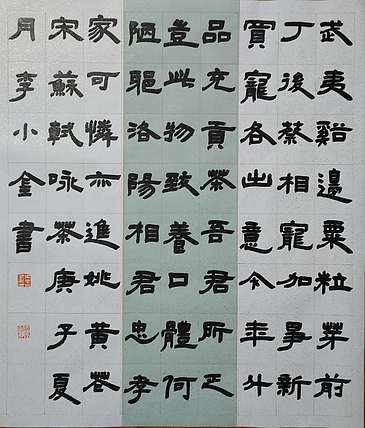 武夷谿邊粟粒芽前
丁後蔡相寵加爭新
買寵各出意今年斗
品充貢茶吾君所乏
豈此物致養口體何
陋洛陽相君忠孝
家可憐亦進姚黃花
宋蘇軾咏茶庚子夏
月李小金書